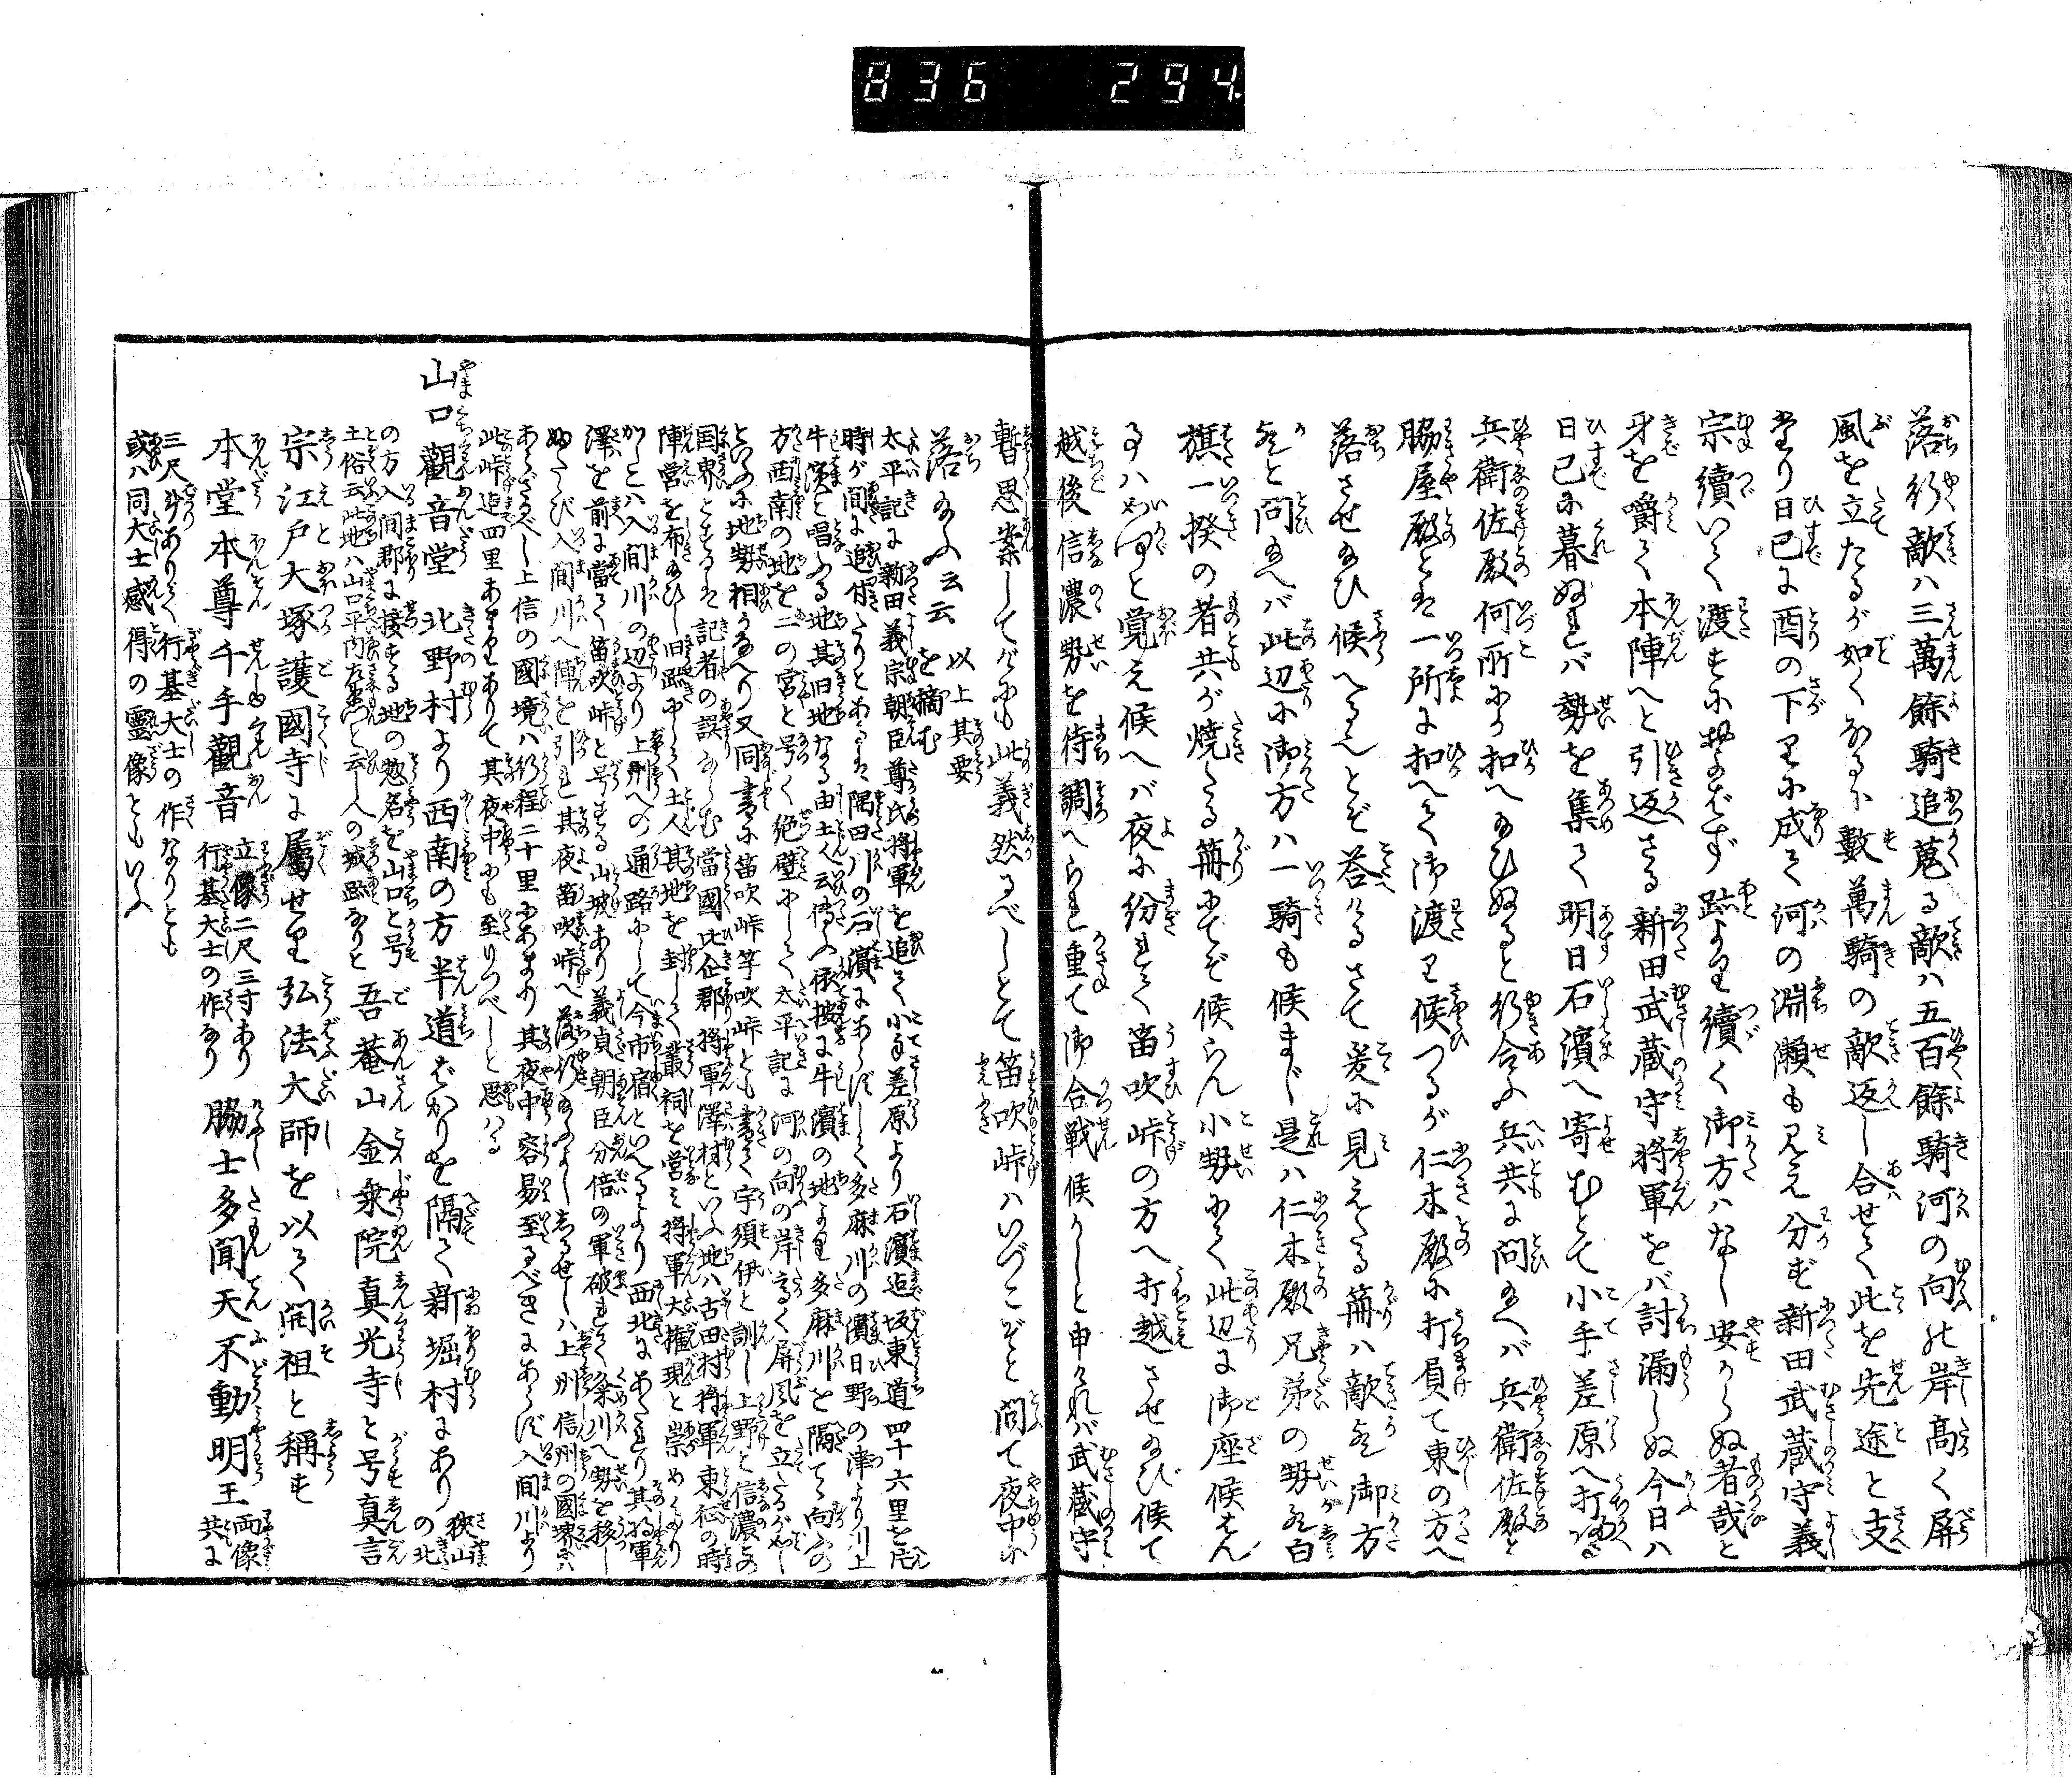 836 294
落行敵ハ三萬餘騎追蒐る敵ハ五百餘騎河の向の岸高く屏
風を立たるが如くなるに數萬騎の敵返し合せて此を先途と支
たり日已に酉の下りに成て河の淵瀬も見え分ず新田武蔵守義
宗續いて渡すに及ばず跡より續く御方ハなし安からぬ者哉と
牙を嚼て本陣へと引返さる新田武蔵守将軍をバ討漏しぬ今日ハ
日已に暮ぬれバ勢を集て明日石濱へ寄むとて小手差原へ打帰る
兵衛佐殿何所にか扣へ給ひぬると行合ふ兵共に問給へバ兵衛佐殿と
脇屋殿とハ一所に扣へて御渡り候つるが仁木殿に打負て東の方へ
落させ給ひ候へるとぞ答ける さて爰に見えたる篝ハ敵か御方
かと問給へバ此辺に御方ハ一騎も候まじ是ハ仁木殿兄弟の勢か白
旗一揆の者共が焼たる篝にてぞ候らん小勢にて此辺に御座候はん
事ハ如何と覚え候へバ夜に紛れて笛吹峠の方へ打越させ給び候て
越後信濃勢を待調へられ重て御合戦候かしと申けれバ武蔵守
暫思案してげにも此義然るべしとて笛吹峠ハいづこぞと問て夜中に
落給ふ云云 以上其要を摘む
太平記に新田義宗朝臣尊氏将軍を追て小手差原より石濱迄坂東道四十六里を片
時が間に追付たりとあるハ隅田川の石濱にあらずして多麻川の濱日野の津より川上
牛濱と唱ふる地其旧地なる由土人云傳ふ依按に牛濱の地より多麻川を隔てゝ向ふの
方西南の地を二の宮と号く絶壁にして太平記に河の向の岸高く屏風を立たるが如し
といふに地勢相かなへり又同書に笛吹峠竽吹峠とも書て宇須伊と訓し上野と信濃との
国界とするハ記者の誤ならむ當國比企郡将軍澤村といふ地ハ古田村将軍東征の時
陣営を布給ひし旧跡にして土人其地を封して叢祠を営み将軍大権現と崇めたり
かしこハ入間川の辺より上州への通路にして今市宿といへるより西北にあたれり其将軍
澤を前に當て笛吹峠と号する山坡あり義貞朝臣分倍の軍破れて条川へ勢を移し
ぬたび入間川へ陣を引れ其夜笛吹峠へ落行給ふよししるせしハ上州信州の國界にハ
あらざるべし上信の國境ハ行程二十里にあまり其夜中容易至るべきにあらず入間川より
此峠迄四里あまりありて其夜中にも至りつべしと思ハる
山口觀音堂 北野村より西南の方半道ばかりを隔て新堀村にあり 狭山の北
の方入間郡に接する地の惣名を山口と号
土俗云此地ハ山口平内左衛門と云し人の城跡なりと 吾菴山金乗院真光寺と号真言
宗江戸大塚護國寺に屬せり弘法大師を以て開祖と稱す
本堂本尊千手觀音 立像二尺三寸あり行基大士の作なり 脇士多聞天不動明王 両像共に
三尺斗ありて行基大士の作なりとも
或ハ同大士感得の靈像ともいふ